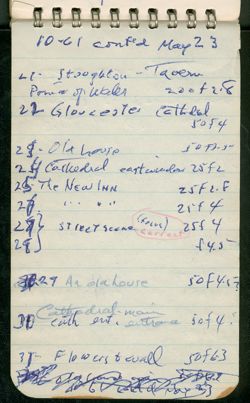 10-61 cont'd May 23
21- Stoughton - Tavern
Prince of Wales 200 f 2.8
22 Gloucester Cathedral
50 f 4
23- Old house 50 f 3.5
24 Cathedral east window 25 f 2
25 The New Inn 25 f 2.8
26 " " " 25 f 4
27 street scene (focus) 25 f 4
28 correct f 4.5
29 An old house 50 f 4.5
Cathedral-main
30 Cath. ent. entrance 50 f 4
31- Flowers & wall 50 f 6.3